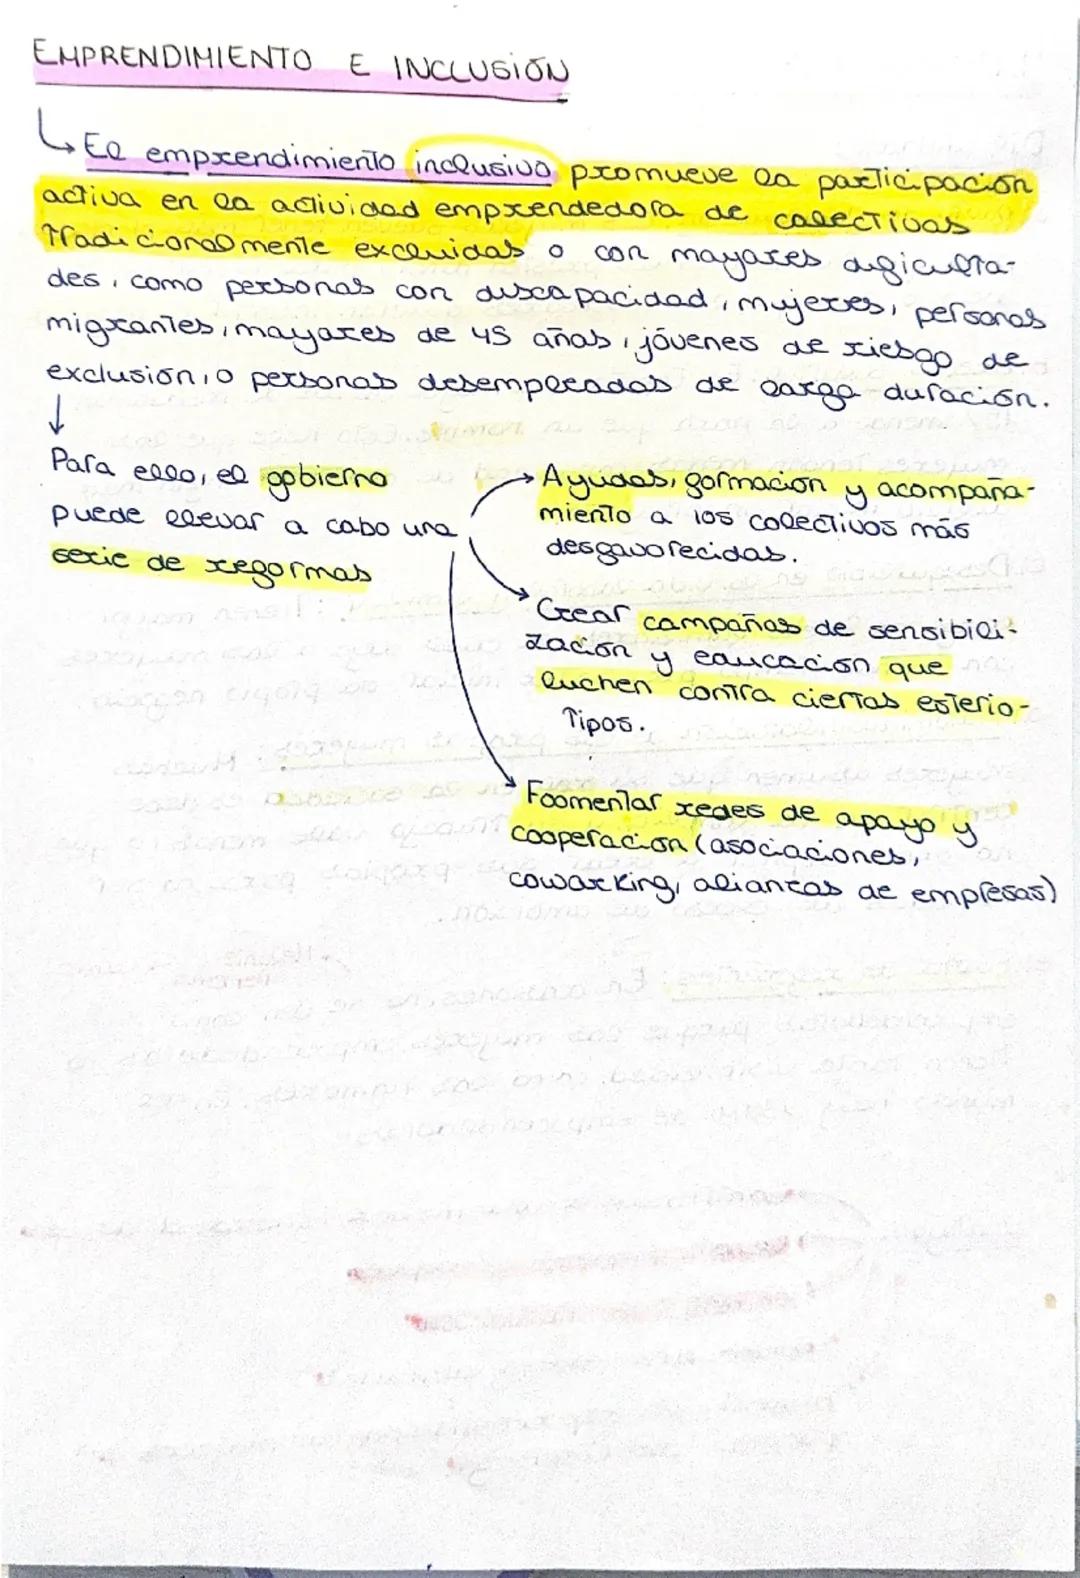 EMPRENDIMIENTO E INCLUSIÓN
El emprendimiento inclusivo promueve la participación
activa en la actividad emprendedora de colectivos
tradicionalmente excluidos o con mayores dificulta-
des, como personas con discapacidad, mujeres, personas
migrantes, mayores de 45 años, jóvenes de riesgo de
exclusión, o personas desempleadas de larga duración.
Para ello, el gobierno
puede llevar a cabo una
serie de reformas
Ayudas, formación y acompaña-
miento a los colectivos más
desfavorecidos.
Crear campañas de sensibili-
zación y educación que
luchen contra ciertos esterio-
tipos.
Foomentar redes de apoyo y
cooperación (asociaciones,
coworking, alianzas de empresas)